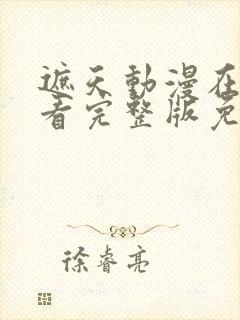 遮天動漫在
看完整版免
徐睿亮